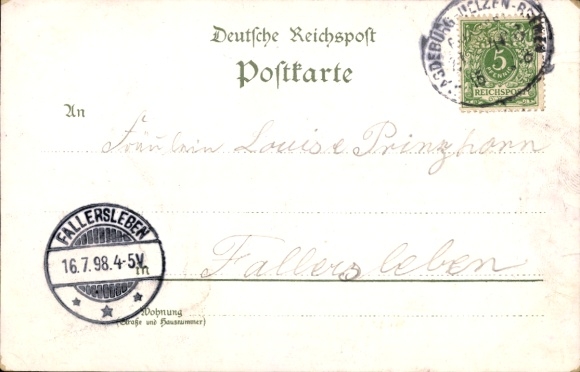 Deutsche Reichspost
Postkarte
5
REICHSPOST
An
Fräulein Louise Prinzhorn
FALLERSLEBEN
16.7.98.4-5V.
in
Fallersleben
Wohnung
(Straße und Hausnummer)